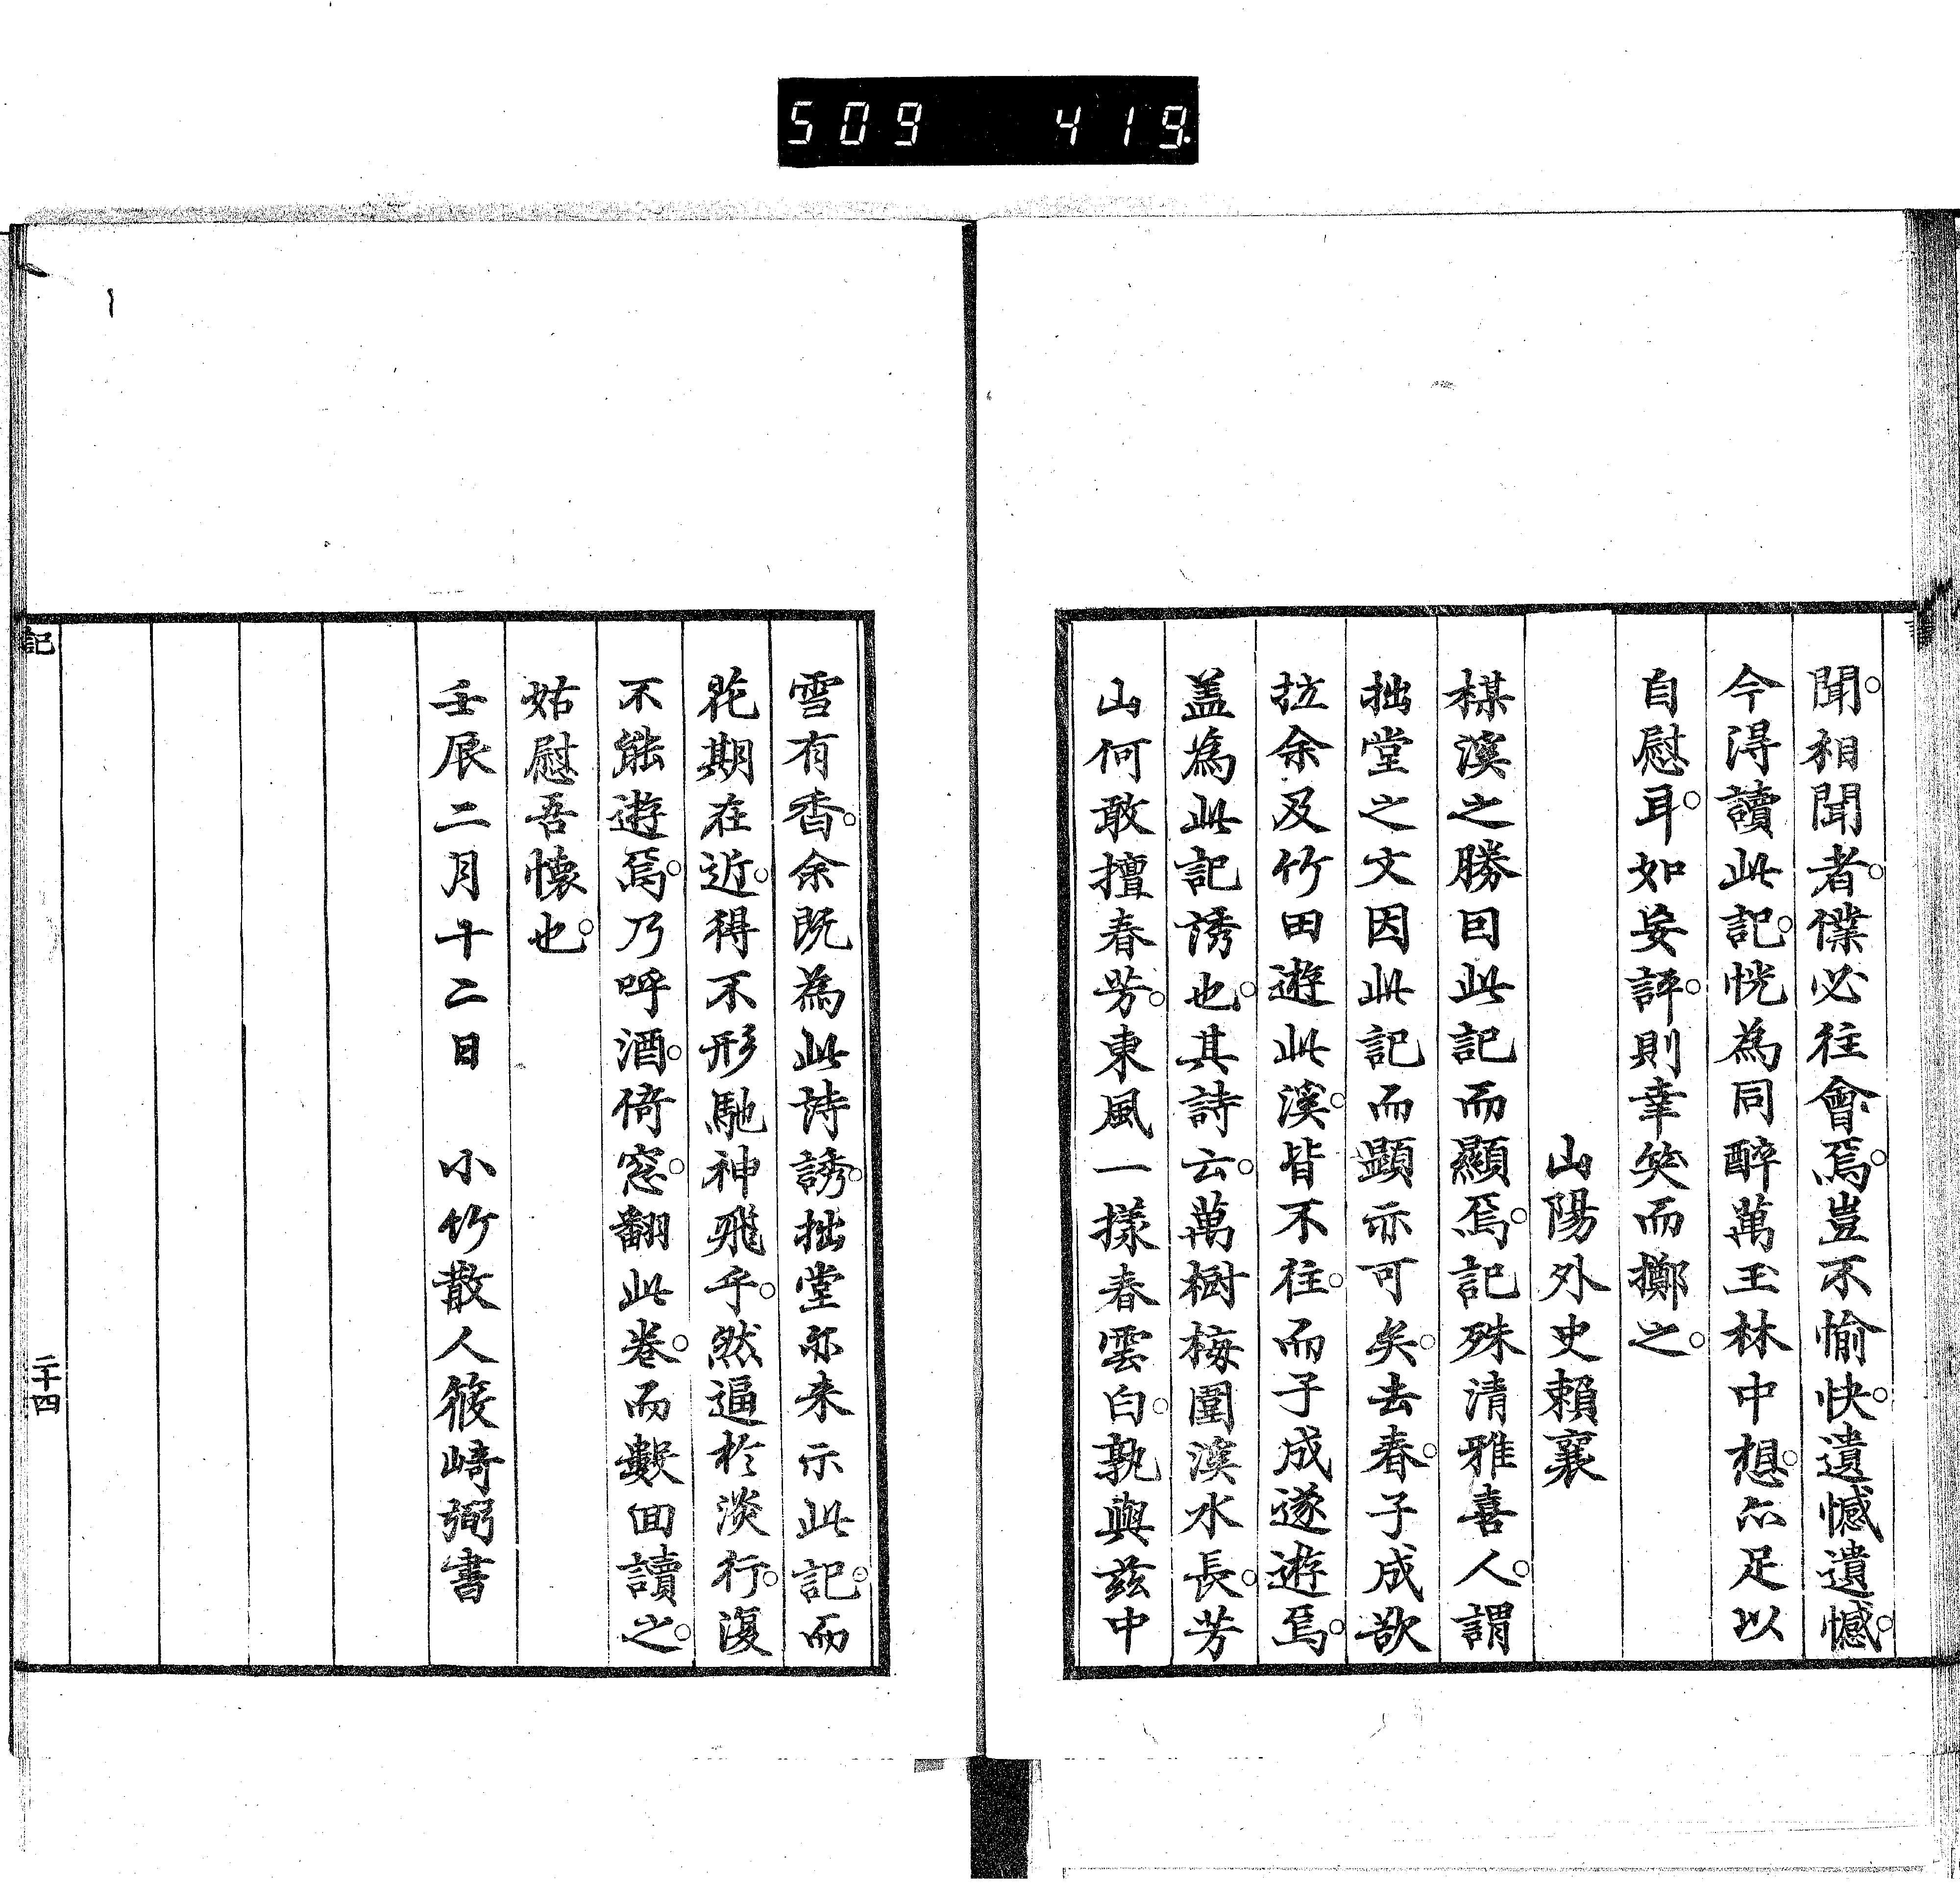 509 419
聞。相聞者。僕必往會焉。豈不愉快。遺憾遺憾。
今得讀此記。恍為同醉萬玉林中想。亦足以
自慰耳。如妄評。則幸笑而擲之。
山陽外史賴襄
楳溪之勝因此記而顯焉。記殊清雅喜人。謂
拙堂之文因此記而顕亦可矣。去春。子成欲
拉余及竹田遊此溪。皆不往。而子成遂遊焉。
盖為此記誘也。其詩云。萬樹梅圍溪水長。芳
山何敢擅春芳。東風一樣春雲白。孰與茲中
雪有香。余既為此詩誘。拙堂亦来示此記。而
花期在近。得不形馳神飛乎。然逼於淡行。復
不能遊焉。乃呼酒。倚窓。翻此巻。而數回讀之。
姑慰吾懐也。
壬辰二月十二日 小竹散人篠崎弼書
記
二十四